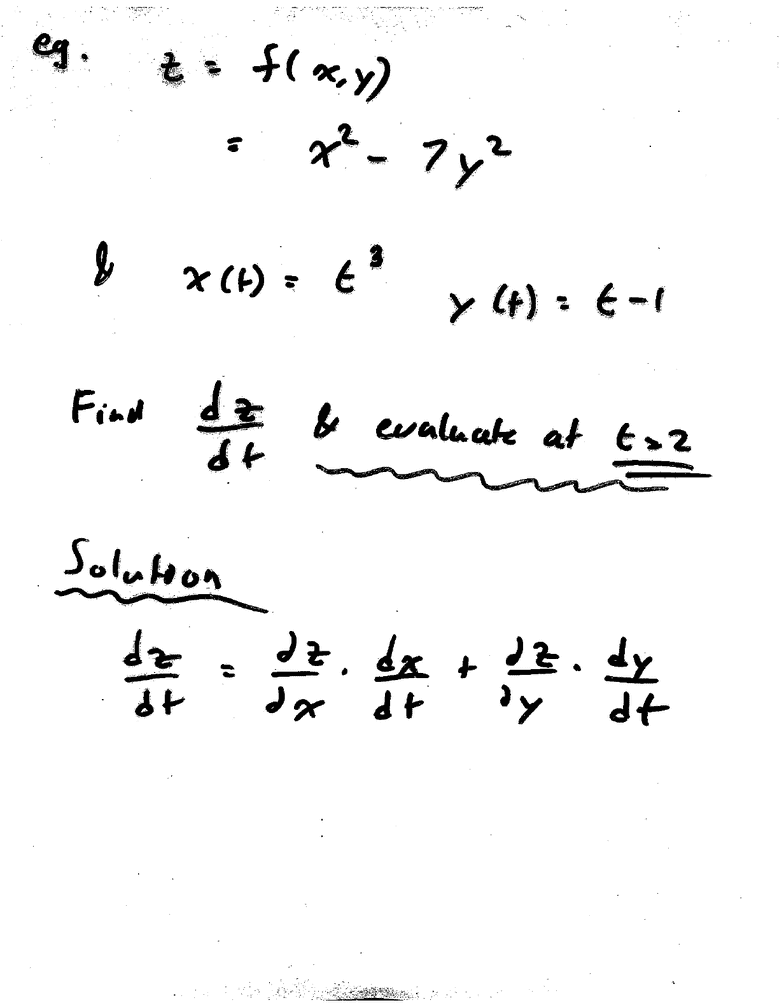 eg. z = f(x,y)
= x² - 7y²
& x(t) = t³ y(t) = t-1
Find dz/dt & evaluate at t=2
Solution
dz/dt = ∂z/∂x · dx/dt + ∂z/∂y · dy/dt